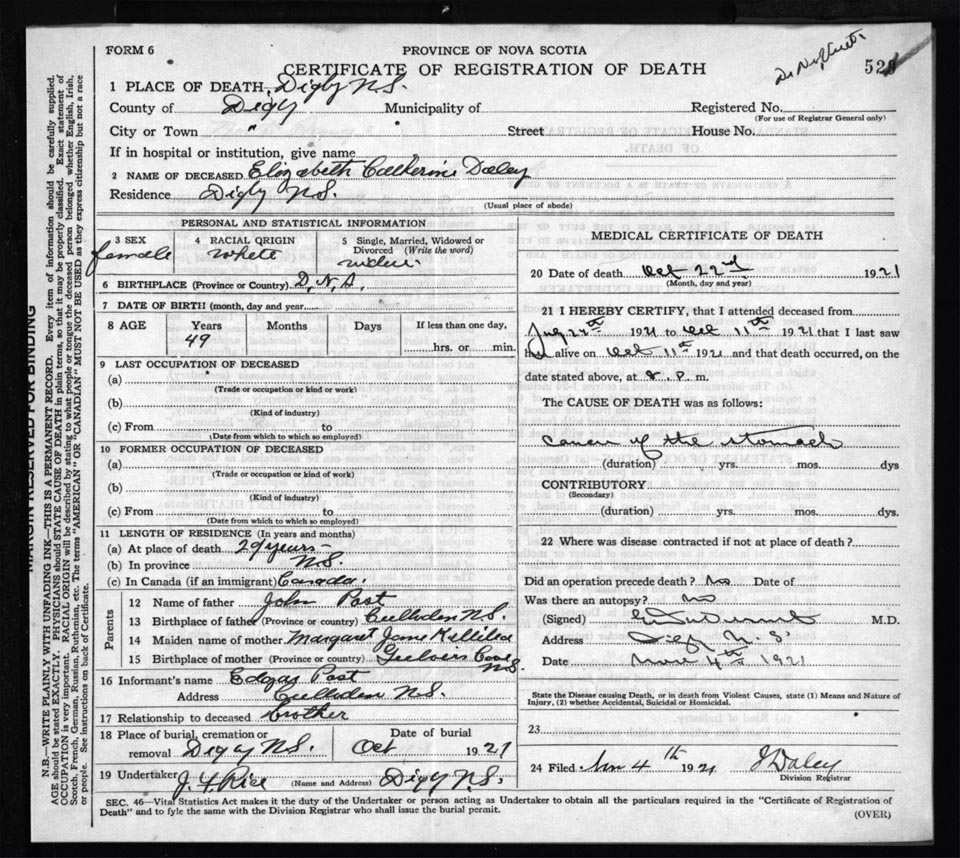 FORM 6
PROVINCE OF NOVA SCOTIA
CERTIFICATE OF REGISTRATION OF DEATH
52
1 PLACE OF DEATH, Digby N.S.
County of Digby Municipality of Registered No.
(For use of Registrar General only)
City or Town " Street House No.
If in hospital or institution, give name
2 NAME OF DECEASED Elizabeth Catherine Daley
Residence Digby N.S.
(Usual place of abode)
PERSONAL AND STATISTICAL INFORMATION
3 SEX 4 RACIAL ORIGIN 5 Single, Married, Widowed or
Divorced (Write the word)
female white
6 BIRTHPLACE (Province or Country)
7 DATE OF BIRTH (month, day and year
8 AGE Years Months Days If less than one day,
49
hrs. or min.
9 LAST OCCUPATION OF DECEASED
(a)
(Trade or occupation or kind or work)
(b)
(Kind of industry)
(c) From to
(Date from which to which so employed)
10 FORMER OCCUPATION OF DECEASED
(a)
(Trade or occupation or kind of work)
(b)
(Kind of industry)
(c) From to
(Date from which to which so employed)
11 LENGTH OF RESIDENCE (In years and months)
(a) At place of death 29 years
(b) In province N.S.
(c) In Canada (if an immigrant) Canada.
Parents
12 Name of father John Post
13 Birthplace of father (Province or country) Culloden N.S.
14 Maiden name of mother Margaret Jane
15 Birthplace of mother (Province or country) Cove
N.S.
16 Informant's name Edgar Post
Address Culloden N.S.
17 Relationship to deceased brother
18 Place of burial, cremation or Date of burial
removal Digby N.S. Oct 1921
19 Undertaker J. Y. Rice (Name and Address) Digby N.S.
MEDICAL CERTIFICATE OF DEATH
20 Date of death Oct 22nd 1921
(Month, day and year)
21 I HEREBY CERTIFY, that I attended deceased from
July 22th 1921 to Oct 11th 1921 that I last saw
her alive on Oct 11th 1921 and that death occurred, on the
date stated above, at 8. P. m.
The CAUSE OF DEATH was as follows:
Cancer of the stomach
(duration) yrs. mos. dys
CONTRIBUTORY
(Secondary)
(duration) yrs. mos. dys.
22 Where was disease contracted if not at place of death?
Did an operation precede death? no Date of
Was there an autopsy? no
(Signed) M.D.
Address Digby N.S.
Date Nov 4th 1921
State the Disease causing Death, or in death from Violent Causes, state (1) Means and Nature of
Injury, (2) whether Accidental, Suicidal or Homicidal.
23
24 Filed Nov 4th 1921 J Daley
Division Registrar
SEC. 46—Vital Statistics Act makes it the duty of the Undertaker or person acting as Undertaker to obtain all the particulars required in the "Certificate of Registration of
Death" and to fyle the same with the Division Registrar who shall issue the burial permit.
(OVER)
MARGIN RESERVED FOR BINDING
N.B. WRITE PLAINLY WITH UNFADING INK—THIS IS A PERMANENT RECORD. Every item of information should be carefully supplied.
AGE should be stated EXACTLY. PHYSICIANS should STATE CAUSE OF DEATH in plain terms, so that it may be properly classified. Exact statement of
OCCUPATION is very important. RACIAL ORIGIN will be described by stating to what people or tongue the deceased person belonged whether English, Irish,
Scotch, French, German, Russian, Ruthenian, etc. The terms "AMERICAN" OR "CANADIAN" MUST NOT BE USED as they express citizenship but not a race
or people. See instructions on back of Certificate.